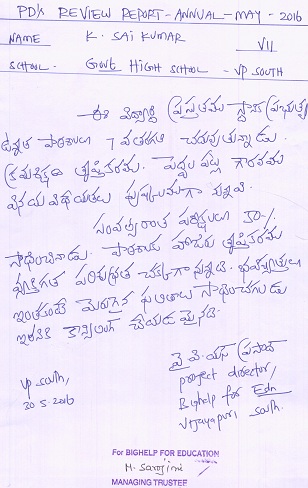 PD's REVIEW REPORT - ANNUAL - MAY - 2016
NAME K. SAI KUMAR VII
SCHOOL - Govt HIGH SCHOOL - VP SOUTH
ఈ విద్యార్థి ప్రస్తుతము స్థానిక ప్రభుత్వ
ఉన్నత పాఠశాల 7 వతరగతి చదువుతున్నాడు.
క్రమశిక్షణ తృప్తికరము. పెద్దల పట్ల గౌరవము
వినయ విధేయతలు పుష్కలముగా వున్నవి.
సంవత్సరాంత పరీక్షలలో 50%
సాధించినాడు. పాఠశాల హాజరు తృప్తికరము
వ్యక్తిగత పరిశుభ్రత చక్కగా వున్నది. భవిష్యత్తులో
ఇంతకంటే మెరుగైన ఫలితాలు సాధించగలడు
ఇతనికి కౌన్సిలింగ్ చేయడమైనది.
వై.వి.యస్ ప్రసాద్
project director,
Bighelp for Edn
Vijayapuri south.
VP South,
30-5-2016
For BIGHELP FOR EDUCATION
M. Sarojini
MANAGING TRUSTEE